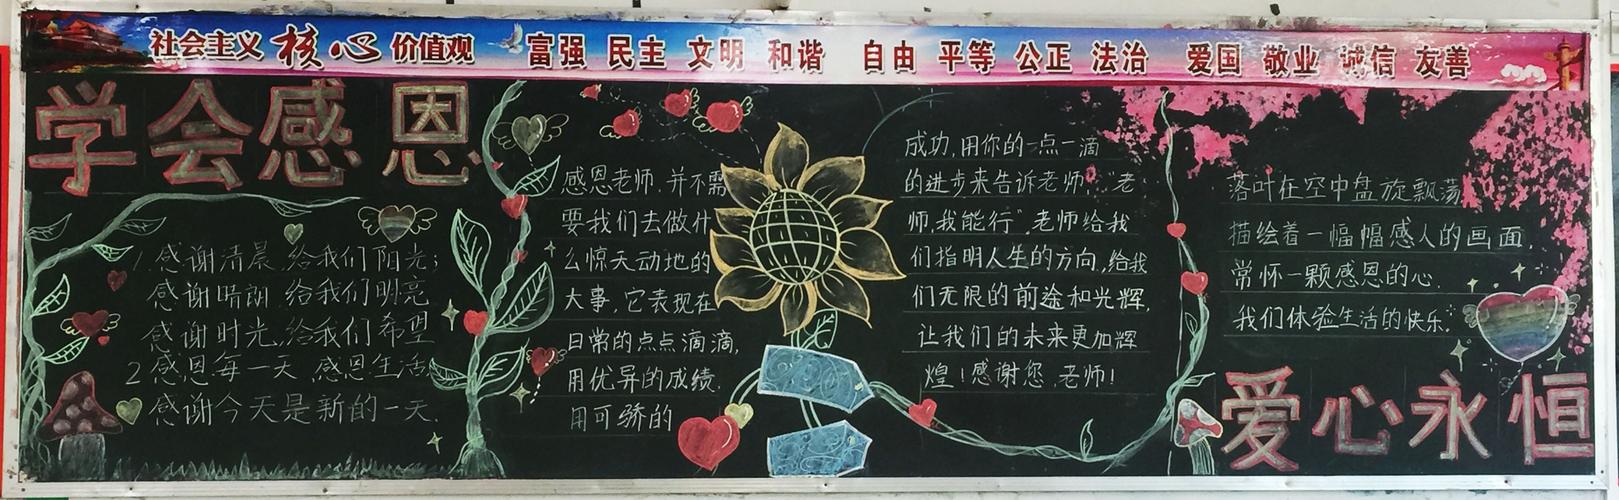 社会主义核心价值观 富强 民主 文明 和谐 自由 平等 公正 法治 爱国 敬业 诚信 友善
学会感恩
1.感谢清晨,给我们阳光;
感谢晴朗,给我们明亮
感谢时光,给我们希望
2感恩每一天,感恩生活,
感谢今天是新的一天
感恩老师,并不需
要我们去做什
么惊天动地的
大事,它表现在
日常的点点滴滴,
用优异的成绩.
用可骄的
成功,用你的一点一滴
的进步来告诉老师,"老
师,我能行",老师给我
们指明人生的方向,给我
们无限的前途和光辉,
让我们的未来更加辉
煌!感谢您,老师!
落叶在空中盘旋飘荡
描绘着一幅幅感人的画面,
常怀一颗感恩的心.
我们体验生活的快乐.
爱心永恒